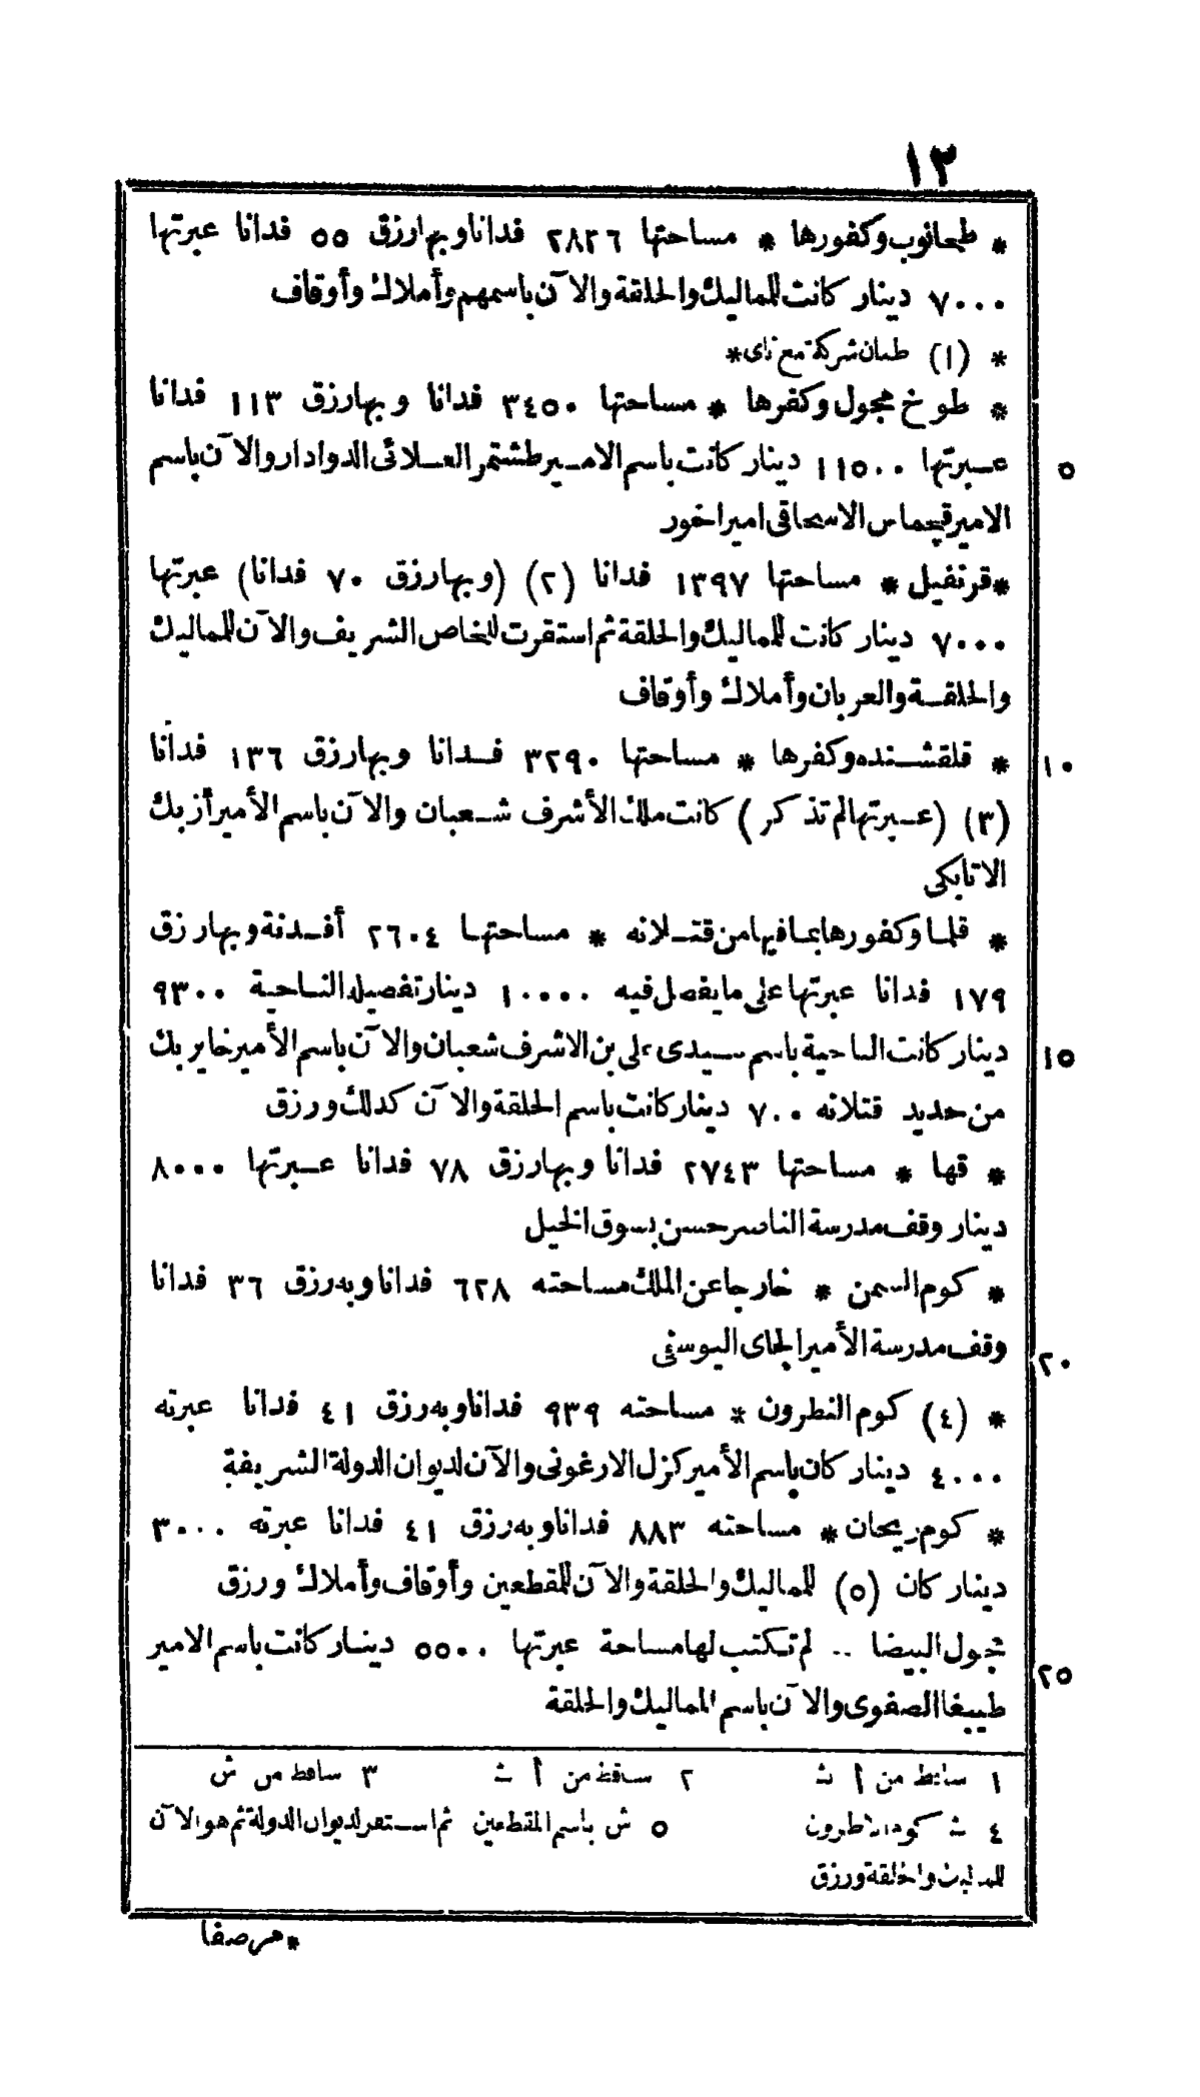 ١٣
* طحانوب وكفورها * مساحتها ٢٨٢٦ فدانا وبها رزق ٥٥ فدانا عبرتها
٧٠٠٠ دينار كانت للمماليك والحلقة والآن باسمهم وأملاك وأوقاف
* (١) طنان شركة مع ناى *
* طوخ مجول وكفرها * مساحتها ٣٤٥٠ فدانا وبها رزق ١١٣ فدانا
عبرتها ١١٥٠٠ دينار كانت باسم الامير طشتمر العلائى الدوادار والآن باسم
٥
الامير قجماس الاسحاقى امير اخور
* قرنفيل * مساحتها ١٣٩٧ فدانا (٢) (وبها رزق ٧٠ فدانا) عبرتها
٧٠٠٠ دينار كانت للمماليك والحلقة ثم استقرت للخاص الشريف والآن للمماليك
والحلقة والعربان وأملاك وأوقاف
* قلقشنده وكفرها * مساحتها ٣٢٩٠ فدانا وبها رزق ١٣٦ فدانا
١٠
(٣) (عبرتها لم تذكر) كانت ملك الأشرف شعبان والآن باسم الأمير أزبك
الاتابكى
* قلما وكفورها بما فيها من قتلانه * مساحتها ٢٦٠٤ أفدنة وبها رزق
١٧٩ فدانا عبرتها على ما يفصل فيه ١٠٠٠٠ دينار تفصيله الناحية ٩٣٠٠
دينار كانت الناحية باسم سيدى على بن الاشرف شعبان والآن باسم الأمير خاير بك
١٥
من حديد قتلانه ٧٠٠ دينار كانت باسم الحلقة والآن كدلك ورزق
* قها * مساحتها ٢٧٤٣ فدانا وبها رزق ٧٨ فدانا عبرتها ٨٠٠٠
دينار وقف مدرسة الناصر حسن بسوق الخيل
* كوم السمن * خارجا عن الملك مساحته ٦٢٨ فدانا وبه رزق ٣٦ فدانا
وقف مدرسة الأمير الجاى اليوسفى
٢٠
* (٤) كوم النطرون * مساحته ٩٣٩ فدانا وبه رزق ٤١ فدانا عبرته
٤٠٠٠ دينار كان باسم الأمير كزل الارغونى والآن لديوان الدولة الشريفة
* كوم ريحان * مساحته ٨٨٣ فدانا وبه رزق ٤١ فدانا عبرته ٣٠٠٠
دينار كان (٥) للمماليك والحلقة والآن للمقطعين وأوقاف وأملاك ورزق
مجول البيضا .. لم تكتب لها مساحة عبرتها ٥٥٠٠ دينار كانت باسم الامير
٢٥
طيبغا الصفوى والآن باسم المماليك والحلقة
١ ساقط من أ ث ٢ ساقط من أ ث ٣ ساقط من ش
٤ ث كوم الاطرون ٥ ش باسم المقطعين ثم استقر لديوان الدولة ثم هو الآن
للمماليك والحلقة ورزق
* مرصفا